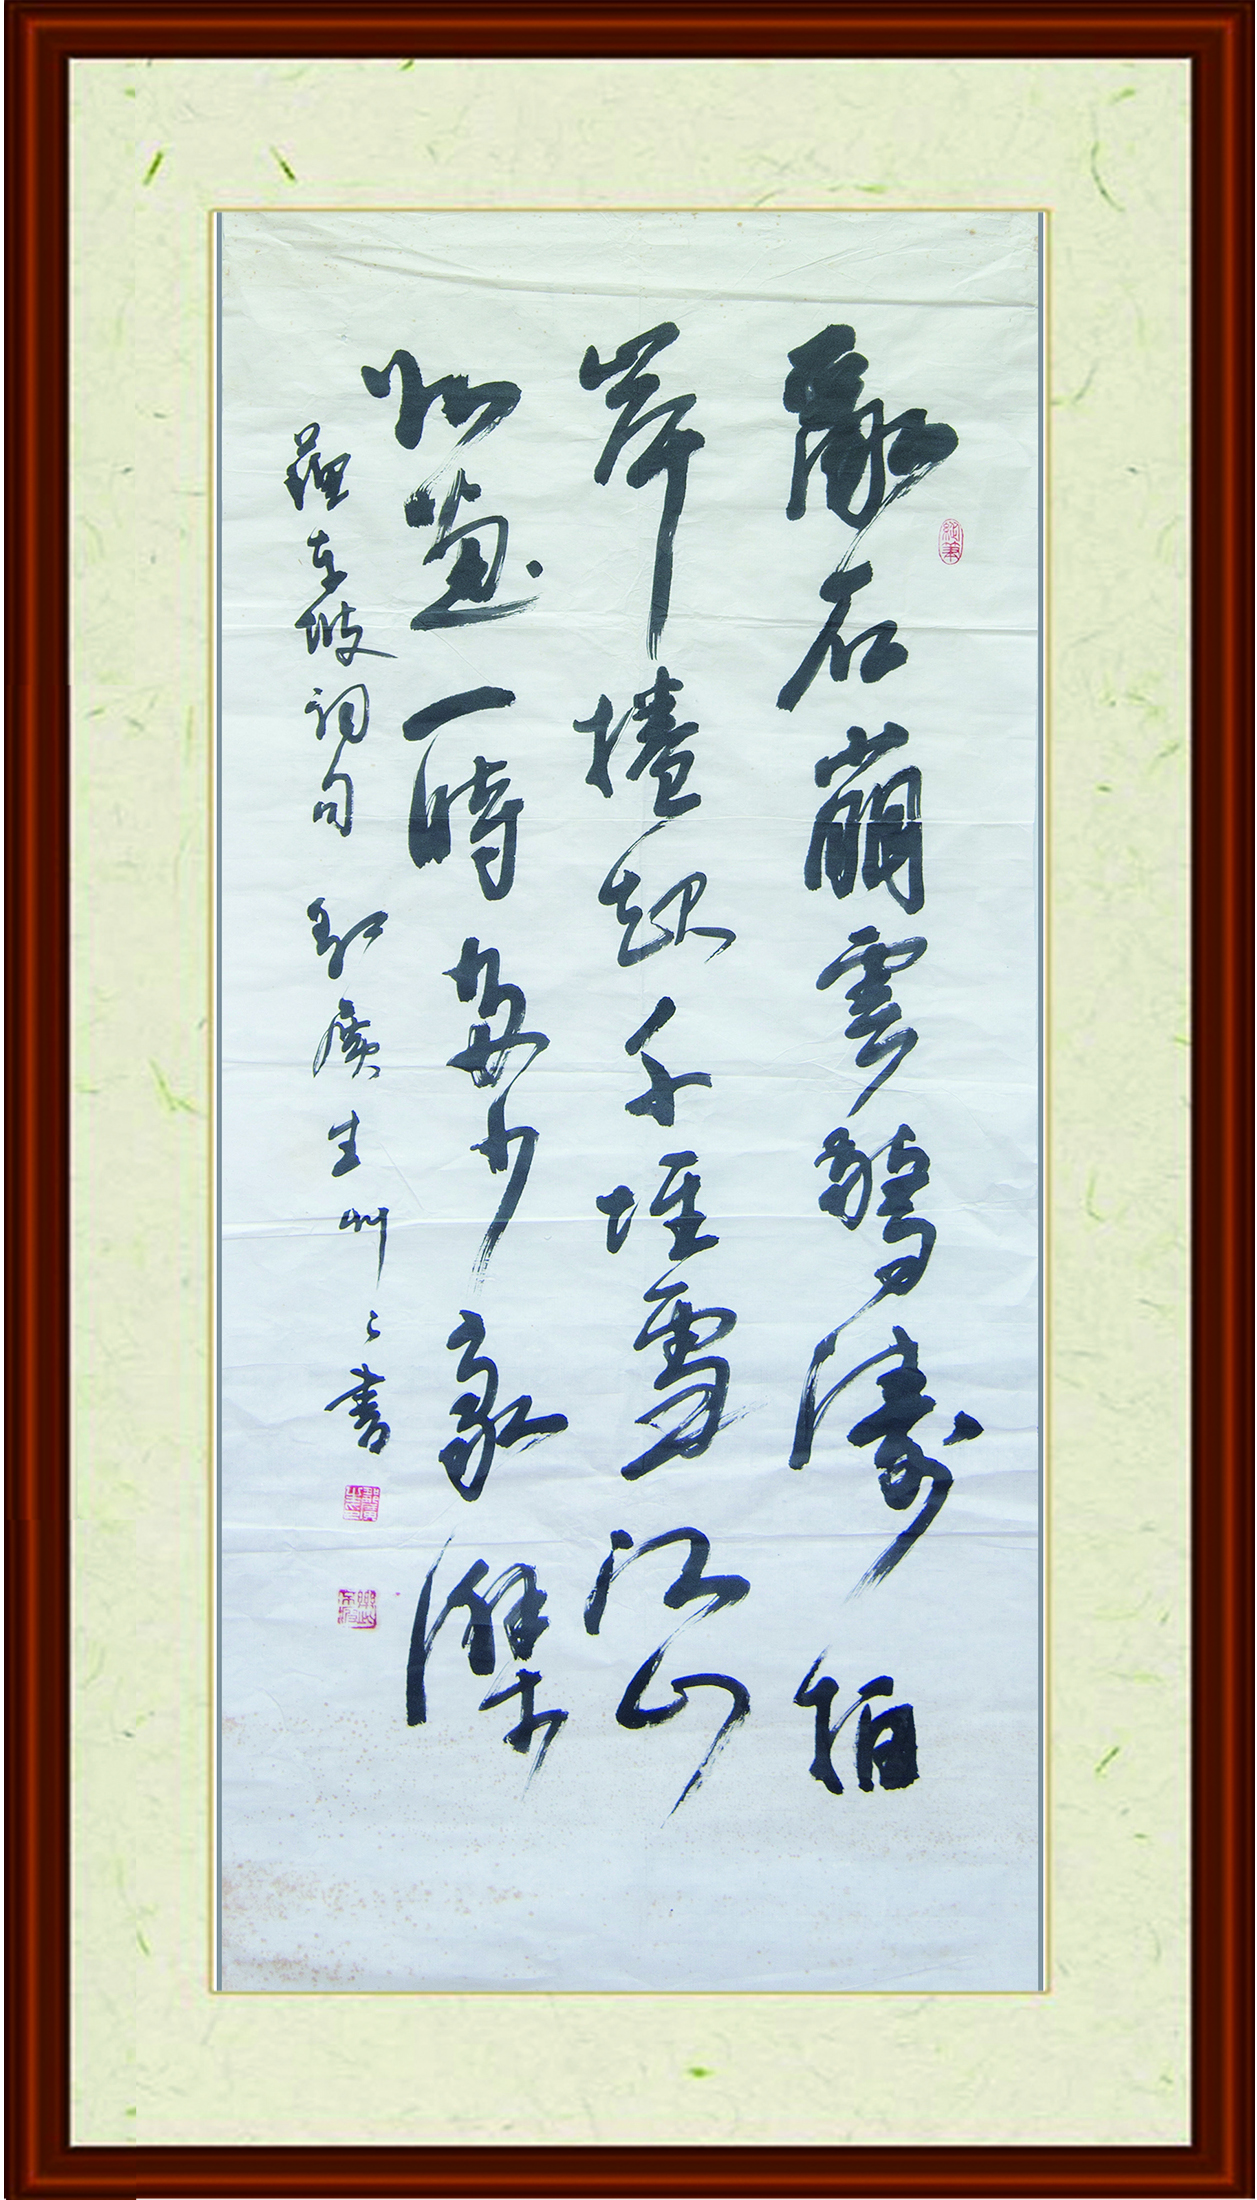 亂石崩雲驚濤拍
岸捲起千堆雪江山
如畫一時多少豪傑
蘇東坡詞句 廣生艸々書